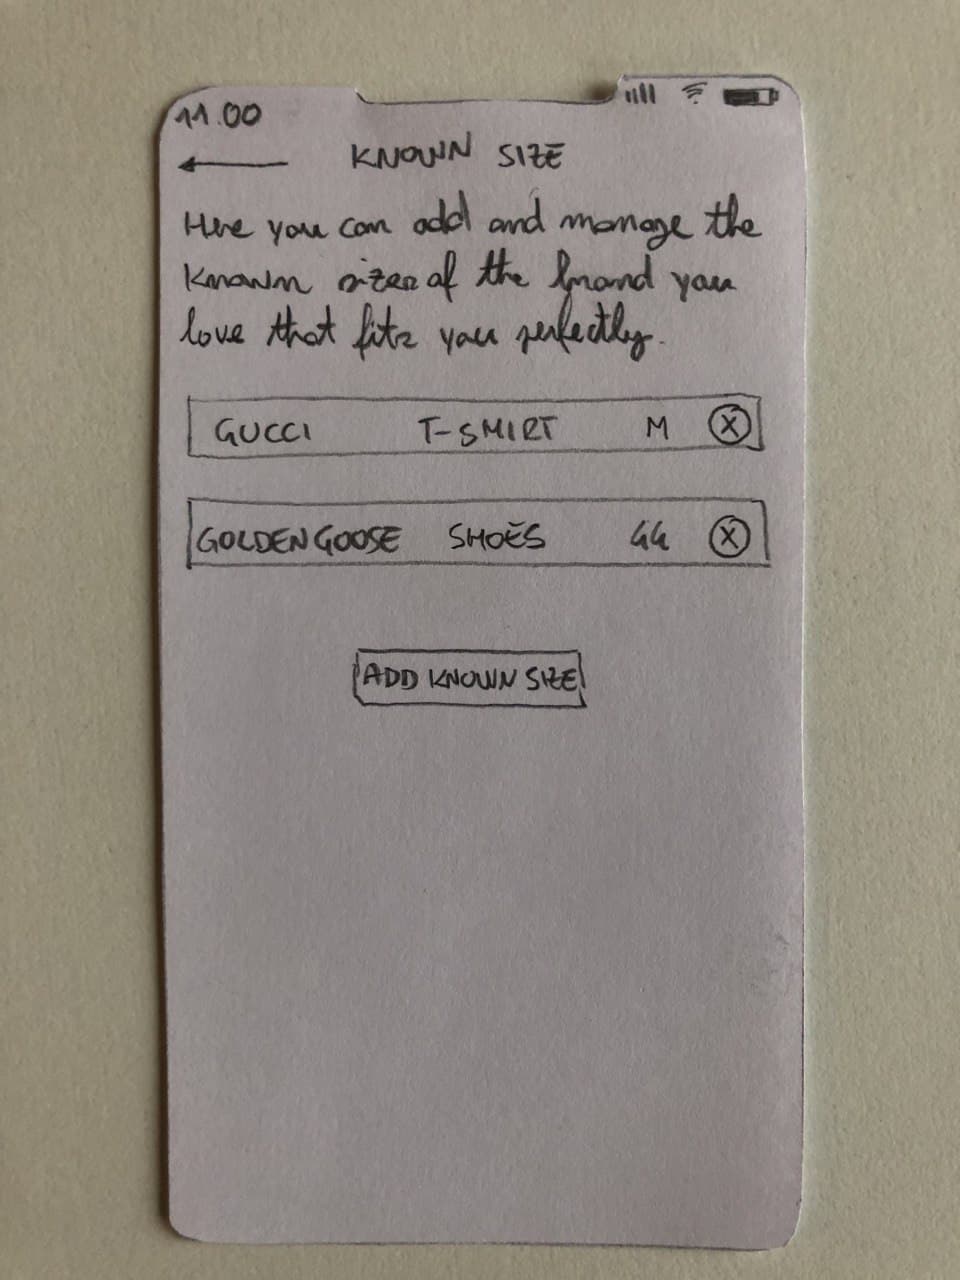 11.00
KNOWN SIZE
Here you can add and manage the
known sizes of the brand you
love that fits you perfectly.
GUCCI T-SHIRT M X
GOLDEN GOOSE SHOES 44 X
ADD KNOWN SIZE